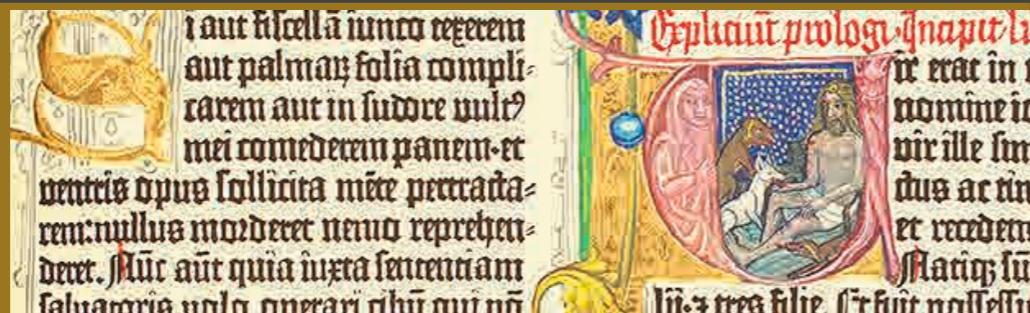 Si aut fiscellā iunco texerem
aut palmaꝝ folia compli=
carem aut in sudore vultꝰ
mei comederem panem·et
ventris opus sollicita mēte pertracta=
rem:nullus morderet nemo reprehen=
deret. Nūc aūt quia iuxta sententiam
saluatoris volo operari cibū qui nō
Expliciūt prologi. Incipit
Vir erat in
nomine
vir ille
ctus ac
et receden
Natiqꝫ
lii·⁊ tres filie. Et fuit possess